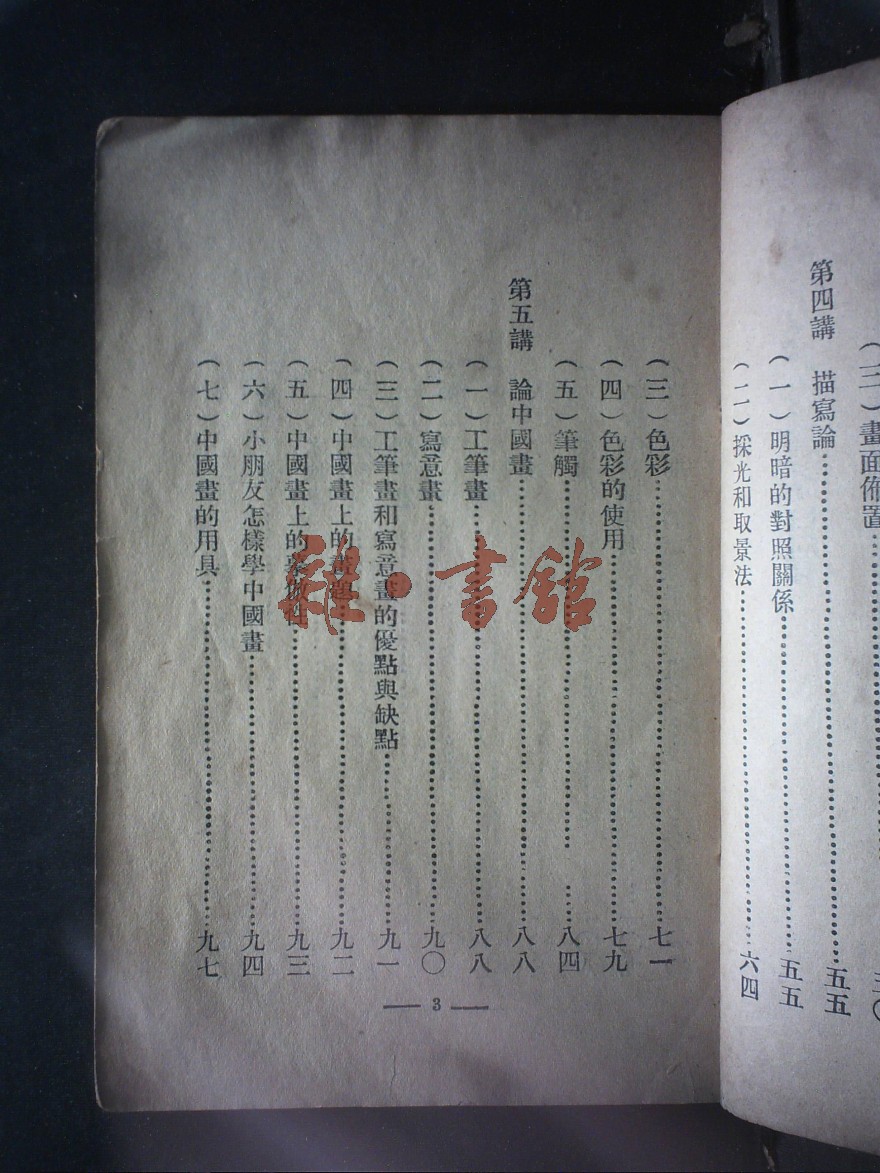 (二)畫面佈置
第四講 描寫論 五五
(一)明暗的對照關係 五五
(二)採光和取景法 六四
(三)色彩 七一
(四)色彩的使用 七九
(五)筆觸 八四
第五講 論中國畫 八八
(一)工筆畫 八八
(二)寫意畫 九〇
(三)工筆畫和寫意畫的優點與缺點 九一
(四)中國畫上的畫題 九二
(五)中國畫上的摹倣性 九三
(六)小朋友怎樣學中國畫 九四
(七)中國畫的用具 九七
3
雜·書館